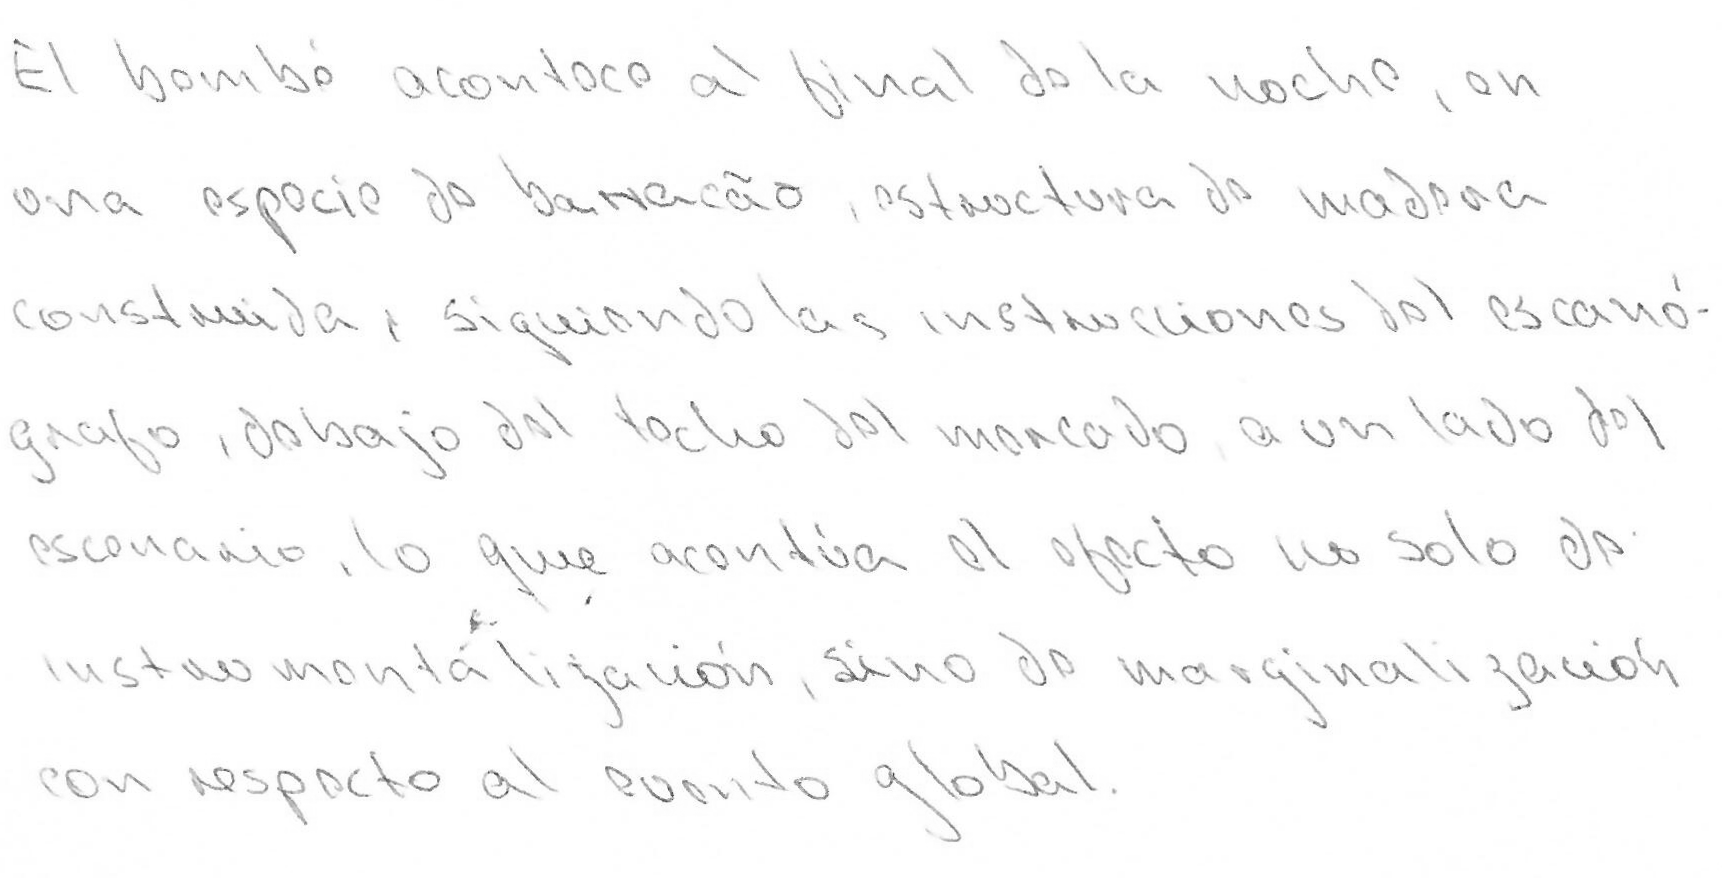 El bembé acontece al final de la noche, en
una especie de barracão, estructura de madera
construida, siguiendo las instrucciones del escenó-
grafo, debajo del techo del mercado, a un lado del
escenario, lo que acentúa el efecto no solo de
instrumentalización, sino de marginalización
con respecto al evento global.